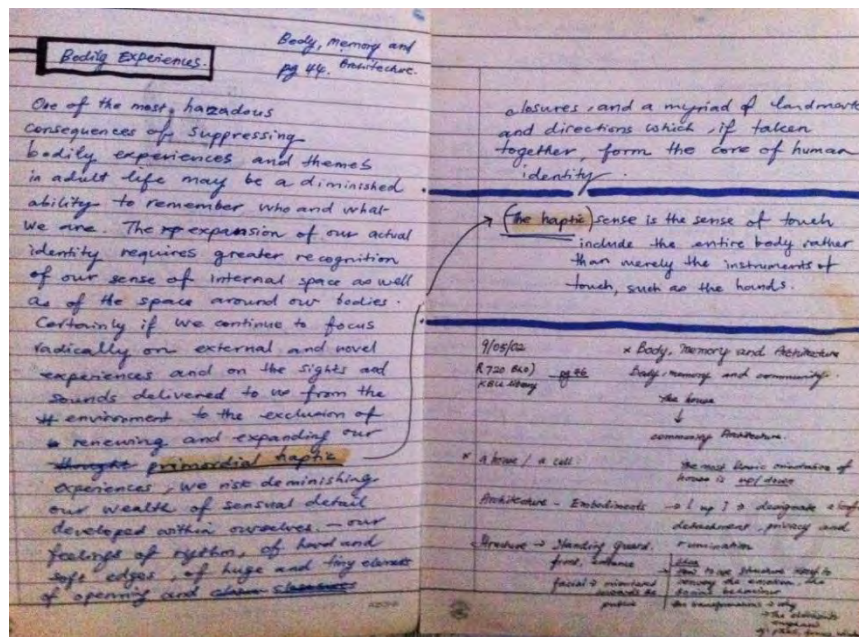 Bodily Experiences.
Body, memory and
pg 44. Architecture.
One of the most hazadous
consequences of suppressing
bodily experiences and themes
in adult life may be a diminished
ability to remember who and what
we are. The expansion of our actual
identity requires greater recognition
of our sense of internal space as well
as of the space around our bodies.
Certainly if we continue to focus
radically on external and novel
experiences and on the sights and
sounds delivered to us from the
enviroment to the exclusion of
renewing and expanding our
thought primordial haptic
experiences, we risk deminishing
our wealth of sensual detail
developed within ourselves. – our
feelings of rythm, of hard and
soft edges, of huge and tiny elements
of openning and
closures, and a myriad of landmark
and directions which, if taken
together, form the core of human
identity.
(The haptic) sense is the sense of touch
include the entire body rather
than merely the instruments of
touch, such as the hands.
9/05/02
x Body, Memory and Architecture
R 720 BLO) pg 46
Body, memory and community.
KBU library
the house
↓
community Architecture.
x a house / a cell:
the most basic orientation of
house is up/down
Architecture - Embodiments → ( up ) → designate →
detachment, privacy and
rumination
Structure → Standing guard.
front, entrance
facial →
public